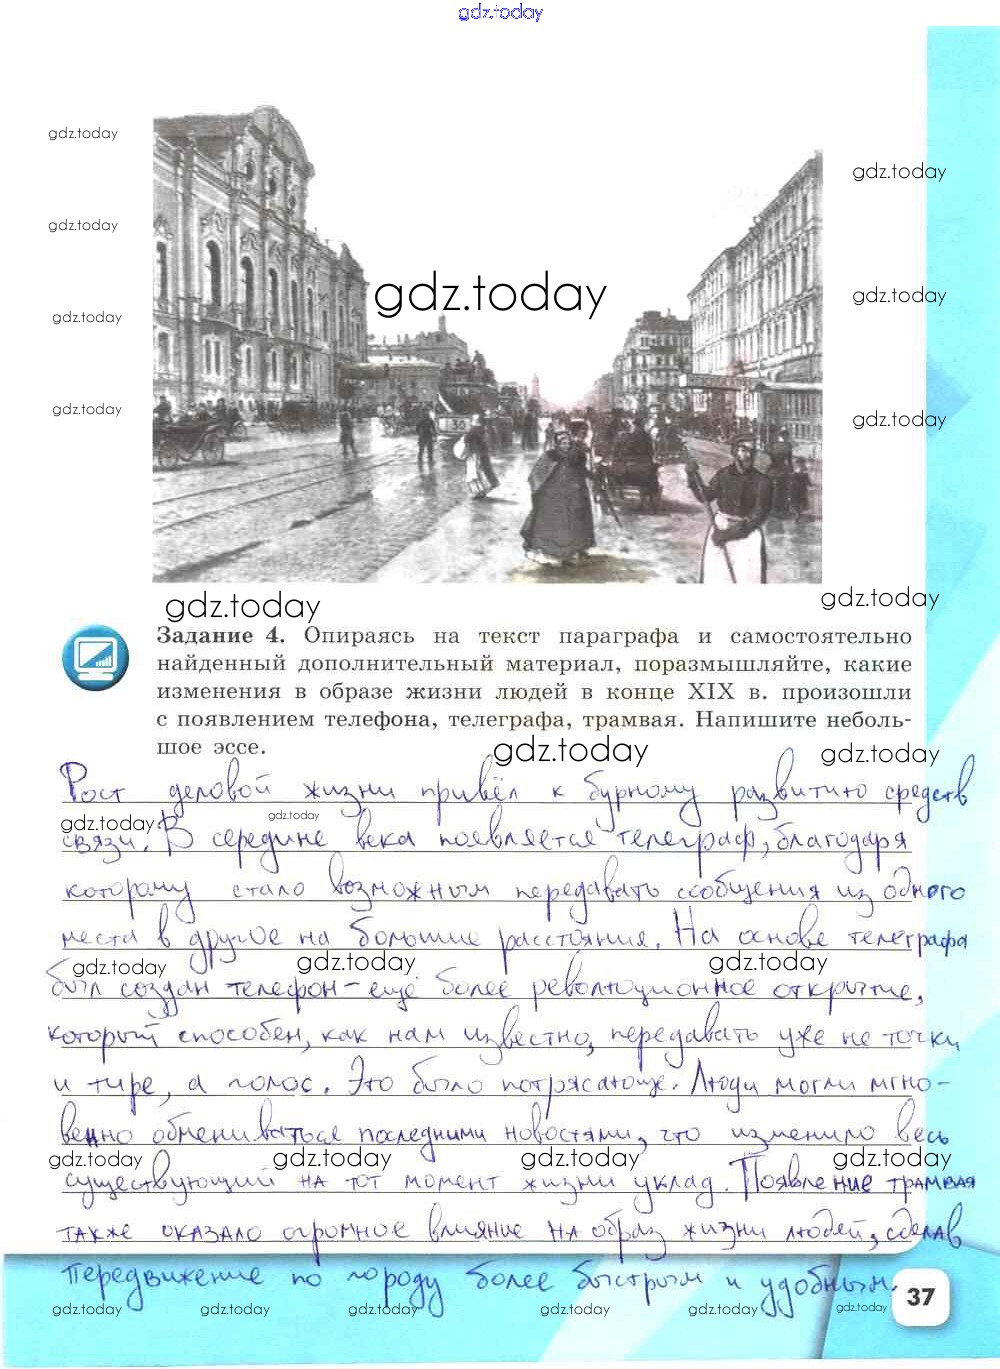 gdz.today
gdz.today
gdz.today
gdz.today
gdz.today
gdz.today
gdz.today
gdz.today
gdz.today
gdz.today
30
gdz.today
gdz.today
Задание 4. Опираясь на текст параграфа и самостоятельно
найденный дополнительный материал, поразмышляйте, какие
изменения в образе жизни людей в конце XIX в. произошли
с появлением телефона, телеграфа, трамвая. Напишите неболь-
шое эссе.
gdz.today
gdz.today
Рост деловой жизни привёл к бурному развитию средств
gdz.today
gdz.today
связи. В середине века появляется телеграф, благодаря
которому стало возможным передавать сообщения из одного
места в другое на большие расстояния. На основе телеграфа
gdz.today
gdz.today
gdz.today
был создан телефон – ещё более революционное открытие,
который способен, как нам известно, передавать уже не точки
и тире, а голос. Это было потрясающе. Люди могли мгно-
венно обмениваться последними новостями, что изменило весь
gdz.today
gdz.today
gdz.today
gdz.today
существующий на тот момент жизни уклад. Появление трамвая
также оказало огромное влияние на образ жизни людей, сделав
передвижение по городу более быстрым и удобным.
gdz.today
gdz.today
gdz.today
gdz.today
gdz.today
gdz.today
37